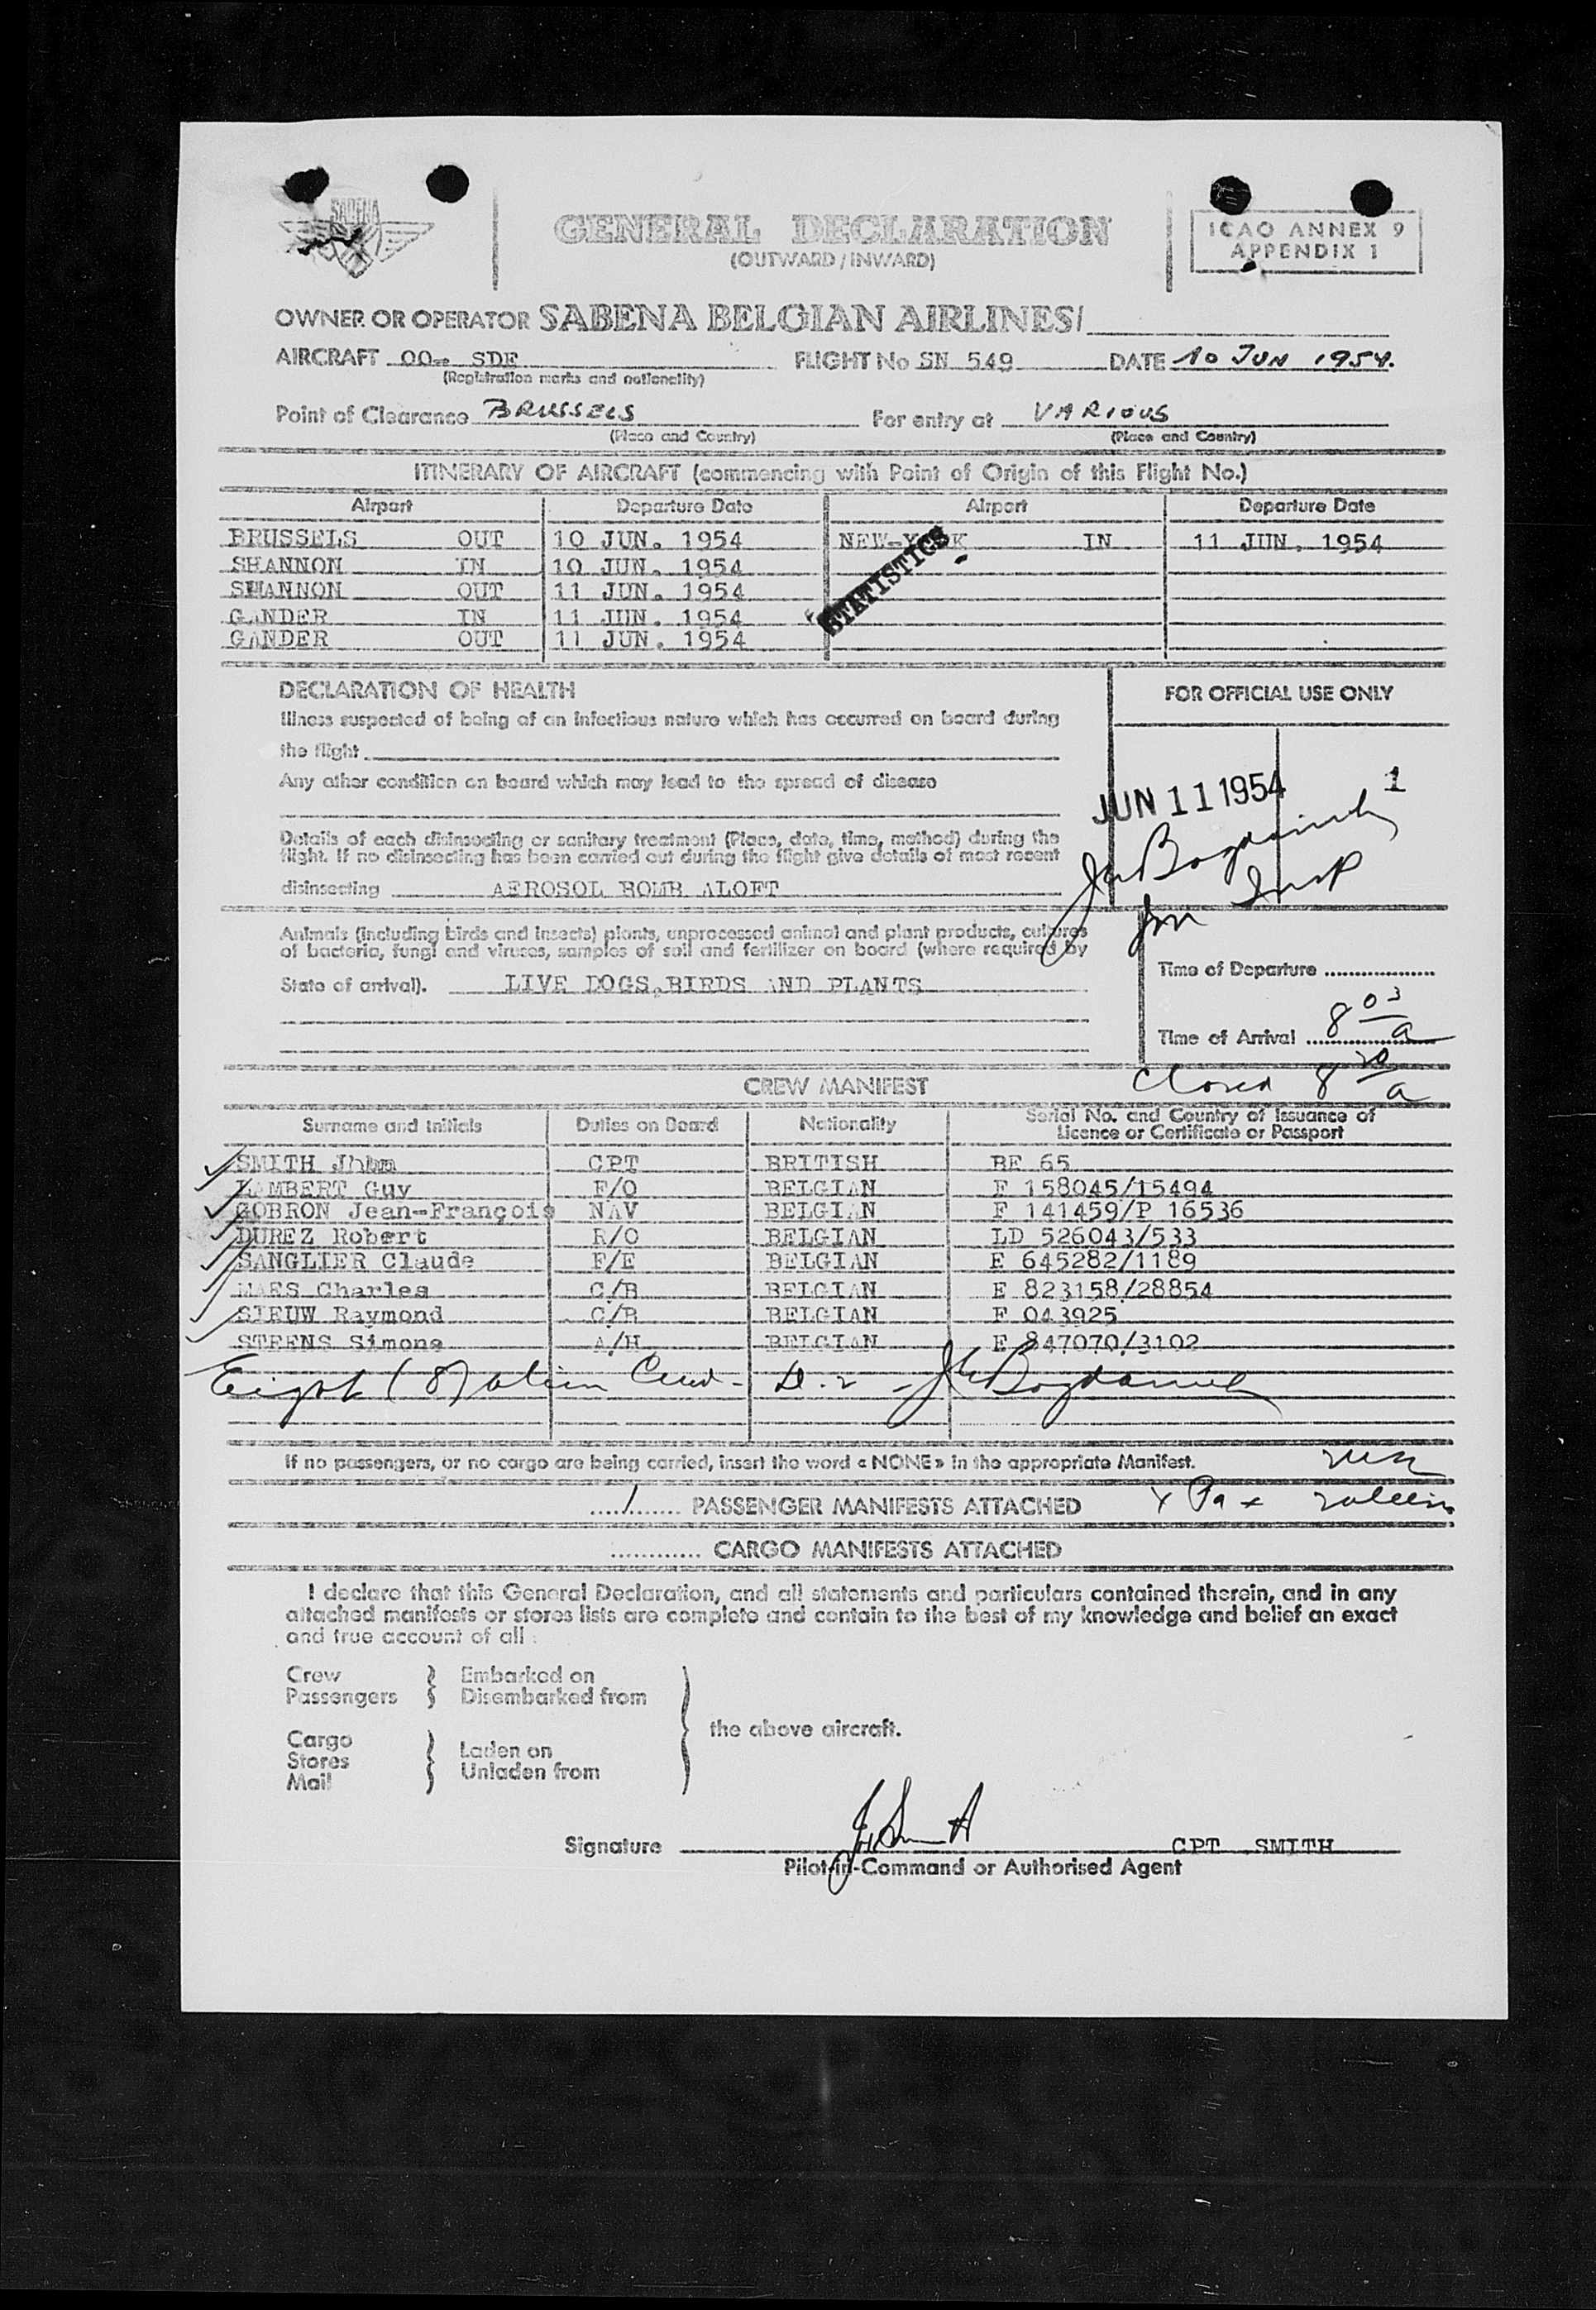 SABENA
GENERAL DECLARATION
(OUTWARD / INWARD)
ICAO ANNEX 9
APPENDIX 1
OWNER OR OPERATOR SABENA BELGIAN AIRLINES/
AIRCRAFT OO- SDE FLIGHT No SN 549 DATE 10 JUN 1954.
(Registration marks and nationality)
Point of Clearance BRUSSELS For entry at VARIOUS
(Place and Country) (Place and Country)
ITINERARY OF AIRCRAFT (commencing with Point of Origin of this Flight No.)
Airport Departure Date Airport Departure Date
BRUSSELS OUT 10 JUN. 1954 NEW-YORK IN 11 JUN. 1954
SHANNON IN 10 JUN. 1954
SHANNON OUT 11 JUN. 1954
GANDER IN 11 JUN. 1954
GANDER OUT 11 JUN. 1954
STATISTICS
DECLARATION OF HEALTH
FOR OFFICIAL USE ONLY
Illness suspected of being of an infectious nature which has occurred on board during
the flight
Any other condition on board which may lead to the spread of disease
JUN 11 1954
1
Details of each disinsecting or sanitary treatment (Place, date, time, method) during the
flight. If no disinsecting has been carried out during the flight give details of most recent
disinsecting AEROSOL BOMB ALOFT
Animals (including birds and insects) plants, unprocessed animal and plant products, cultures
of bacteria, fungi and viruses, samples of soil and fertilizer on board (where required by
State of arrival). LIVE DOGS,BIRDS AND PLANTS
Time of Departure
Time of Arrival 8 03 a
Closed 8 20 a
CREW MANIFEST
Surname and Initials Duties on Board Nationality Serial No. and Country of Issuance of
Licence or Certificate or Passport
SMITH Jhhn CPT BRITISH BE 65
LAMBERT Guy F/O BELGIAN F 158045/15494
GOBRON Jean-François NAV BELGIAN F 141459/P 16536
DUREZ Robert R/O BELGIAN LD 526043/533
SANGLIER Claude F/E BELGIAN E 645282/1189
MAES Charles C/B BELGIAN E 823158/28854
SIEUW Raymond C/B BELGIAN F 043925
STEENS Simone A/H BELGIAN E 847070/3102
Eight (8) alien Crew
If no passengers, or no cargo are being carried, insert the word « NONE » in the appropriate Manifest.
1 PASSENGER MANIFESTS ATTACHED
CARGO MANIFESTS ATTACHED
I declare that this General Declaration, and all statements and particulars contained therein, and in any
attached manifests or stores lists are complete and contain to the best of my knowledge and belief an exact
and true account of all :
Crew Embarked on
Passengers Disembarked from
the above aircraft.
Cargo
Stores Laden on
Mail Unladen from
Signature CPT SMITH
Pilot-in-Command or Authorised Agent